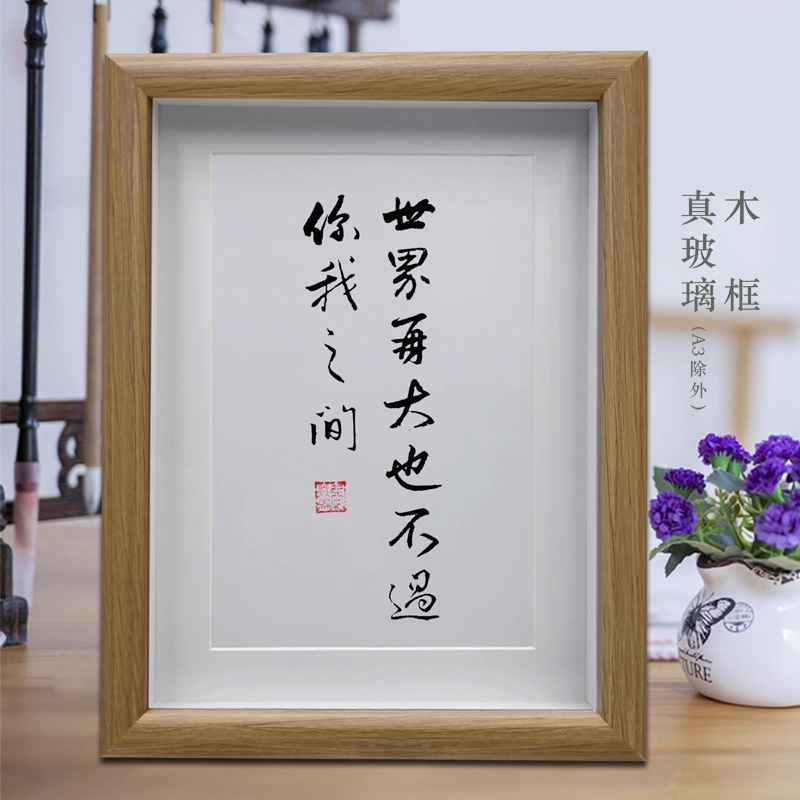 世界再大也不過
你我之间
木框
真玻璃（A3除外）
TURE